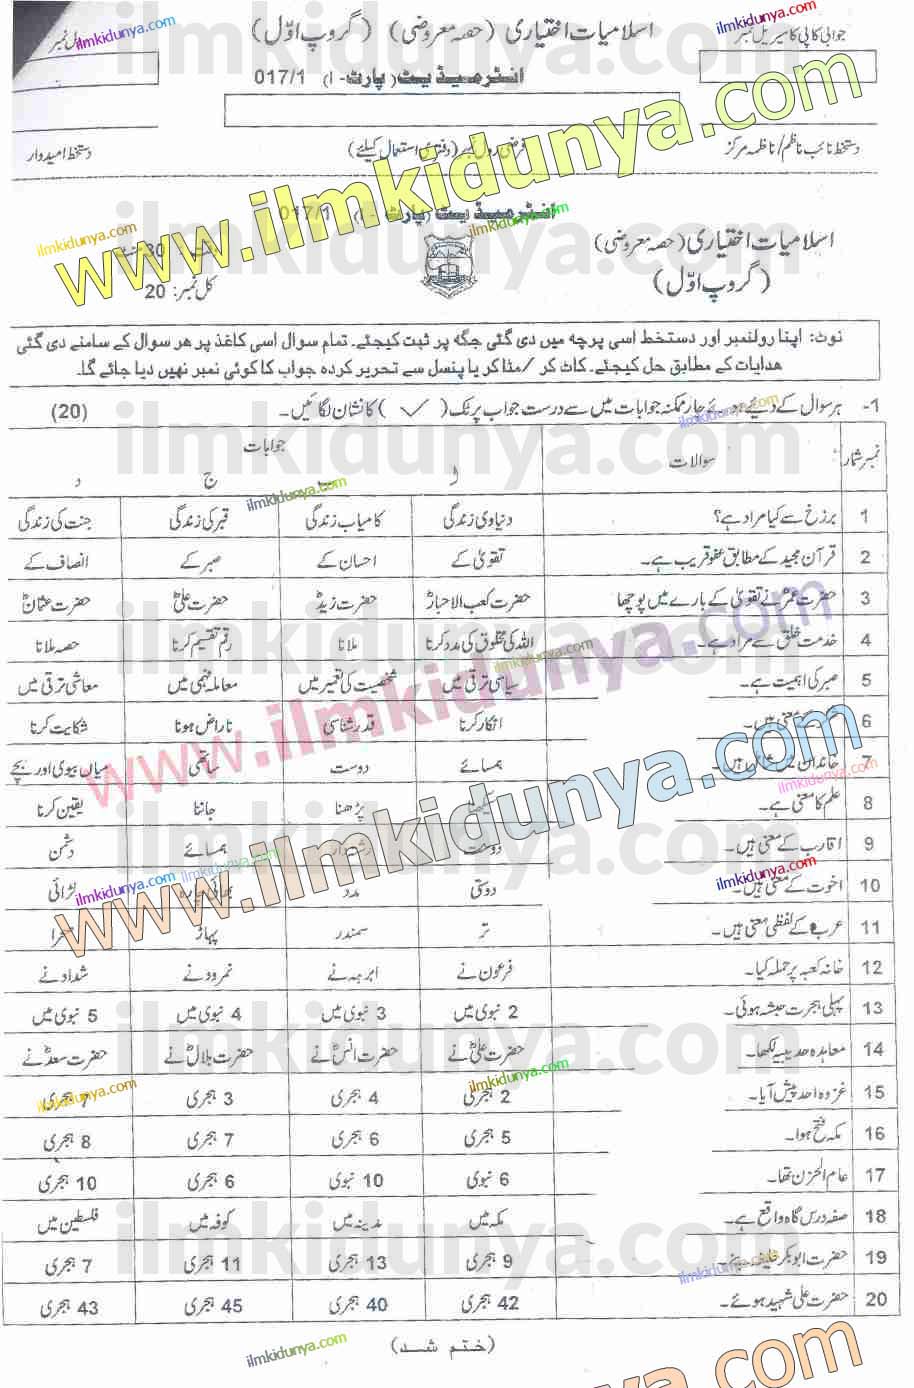 جوابی کاپی کا سیریل نمبر
اسلامیات اختیاری (حصہ معروضی) (گروپ اوّل)
انٹرمیڈیٹ (پارٹ - I) 017/1
دستخط نائب ناظم / ناظمہ مرکز
فرضی رول نمبر (دفتری استعمال کیلئے)
دستخط امیدوار
انٹرمیڈیٹ (پارٹ - I) 017/1
اسلامیات اختیاری (حصہ معروضی)
(گروپ اوّل)
کل نمبر: 20
نوٹ: اپنا رولنمبر اور دستخط اسی پرچہ میں دی گئی جگہ پر ثبت کیجئے۔ تمام سوال اسی کاغذ پر ھر سوال کے سامنے دی گئی
ھدایات کے مطابق حل کیجئے۔ کاٹ کر / مٹا کر یا پنسل سے تحریر کردہ جواب کا کوئی نمبر نھیں دیا جائے گا۔
1- ہر سوال کے دیئے ہوئے چار ممکنہ جوابات میں سے درست جواب پر ٹک (✓) کا نشان لگائیں۔ (20)
نمبر شمار سوالات جوابات
ج د
1 برزخ سے کیا مراد ہے؟ دنیاوی زندگی کامیاب زندگی قبر کی زندگی جنت کی زندگی
2 قرآن مجید کے مطابق عفو قریب ہے۔ تقویٰ کے احسان کے صبر کے انصاف کے
3 حضرت عمرؓ نے تقویٰ کے بارے میں پوچھا حضرت کعب الاحبارؓ حضرت زیدؓ حضرت علیؓ حضرت عثمانؓ
4 خدمت خلق سے مراد ہے۔ اللہ کی مخلوق کی مدد کرنا ملانا رقم تقسیم کرنا حصہ ملانا
5 صبر کی اہمیت ہے۔ سیاسی ترقی میں شخصیت کی تعمیر میں معاملہ فہمی میں معاشی ترقی میں
6 معنی ہیں۔ انکار کرنا قدر شناسی ناراض ہونا شکایت کرنا
7 خاندان میں ہیں۔ ہمسائے دوست ساتھی میاں بیوی اور بچے
8 علم کا معنی ہے۔ پڑھنا جاننا یقین کرنا
9 اقارب کے معنی ہیں۔ دوست رشتہ دار ہمسائے دشمن
10 اخوت کے معنی ہیں۔ دوستی مدد بھائی چارہ لڑائی
11 عرب کے لفظی معنی ہیں۔ تر سمندر پہاڑ صحرا
12 خانہ کعبہ پر حملہ کیا۔ فرعون نے ابرہہ نے نمرود نے شداد نے
13 پہلی ہجرت حبشہ ہوئی۔ 2 نبوی میں 3 نبوی میں 4 نبوی میں 5 نبوی میں
14 معاہدہ حدیبیہ لکھا۔ حضرت علیؓ نے حضرت انسؓ نے حضرت بلالؓ نے حضرت سعدؓ نے
15 غزوہ احد پیش آیا۔ 2 ہجری 4 ہجری 3 ہجری 7 ہجری
16 مکہ فتح ہوا۔ 5 ہجری 6 ہجری 7 ہجری 8 ہجری
17 عام الحزن تھا۔ 6 نبوی 10 نبوی 6 ہجری 10 ہجری
18 صفہ درس گاہ واقع ہے۔ مکہ میں مدینہ میں کوفہ میں فلسطین میں
19 حضرت ابوبکر خلیفہ بنے۔ 9 ہجری 13 ہجری 11 ہجری 7 ہجری
20 حضرت علی شہید ہوئے۔ 42 ہجری 40 ہجری 45 ہجری 43 ہجری
(ختم شد)
www.ilmkidunya.com
www.ilmkidunya.com
www.ilmkidunya.com
ilmkidunya.com